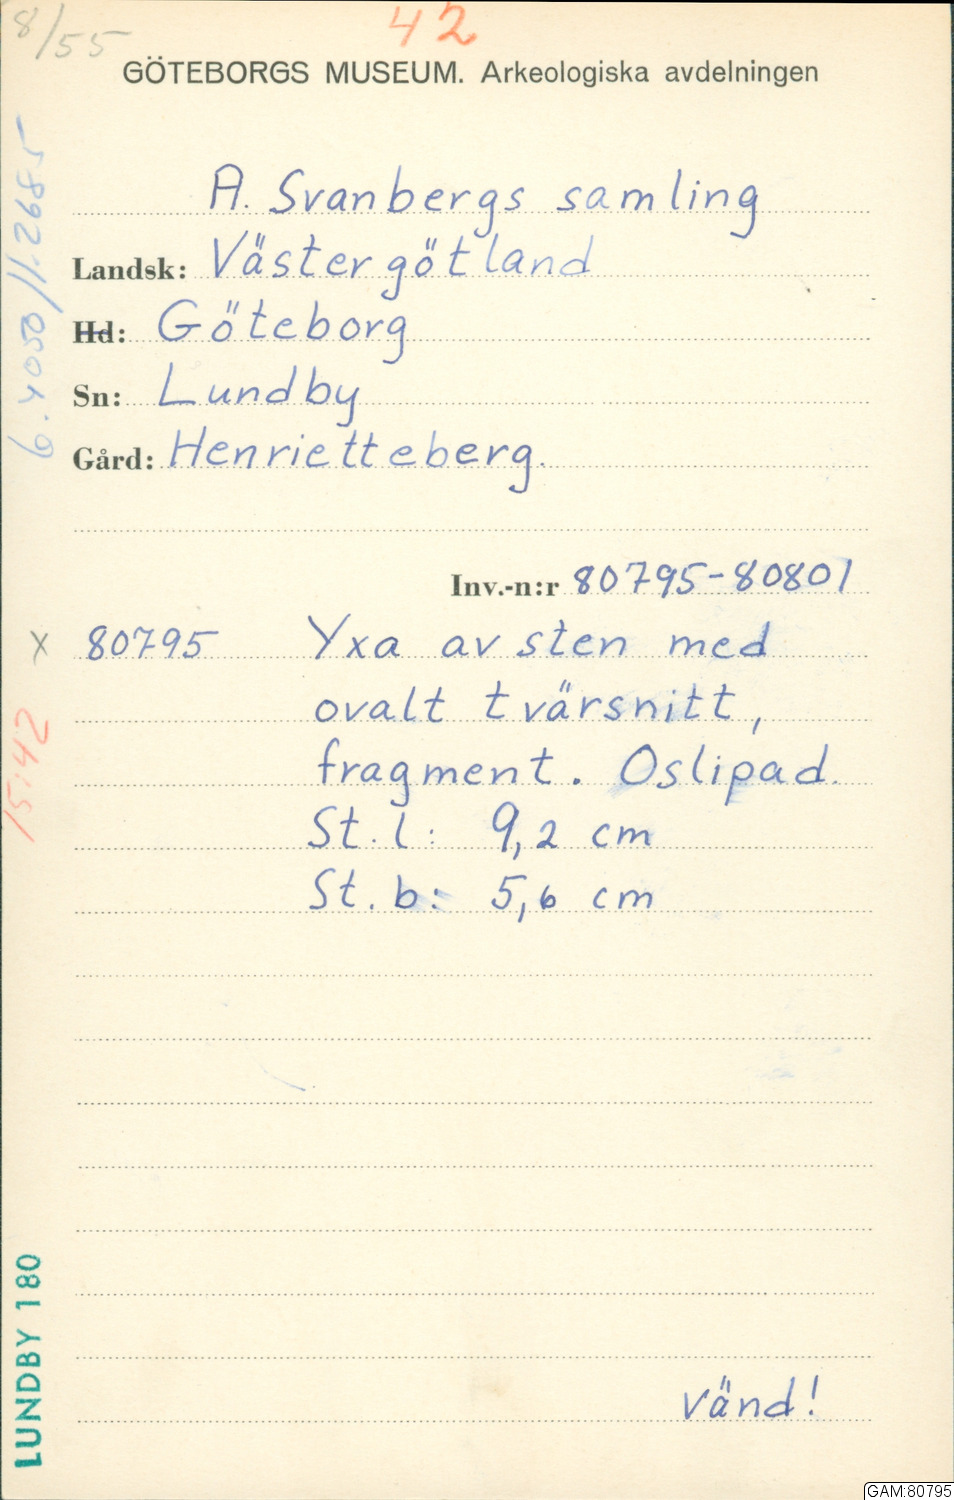 8/55
42
GÖTEBORGS MUSEUM. Arkeologiska avdelningen
A. Svanbergs samling
Landsk: Västergötland
Hd: Göteborg
Sn: Lundby
Gård: Henrietteberg.
Inv.-n:r 80795-80801
x 80795 Yxa av sten med
ovalt tvärsnitt,
fragment. Oslipad.
St. l: 9,2 cm
St. b: 5,6 cm
vänd!
15:42
LUNDBY 180
GAM:80795